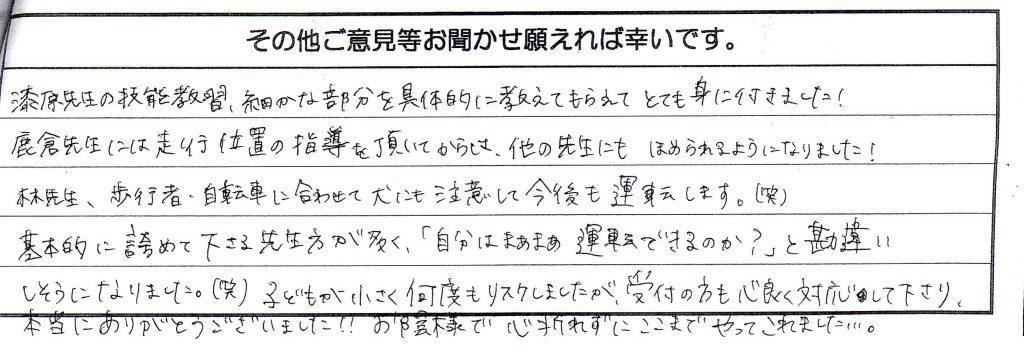 その他ご意見等お聞かせ願えれば幸いです。
漆原先生の技能教習、細かな部分を具体的に教えてもらえて とても身に付きました!
鹿倉先生には走行位置の指導を頂いてからは、他の先生にも ほめられるようになりました!
林先生、歩行者・自転車に合わせて犬にも注意して今後も運転します。(笑)
基本的に誇めて下さる先生方が多く、「自分はまあまあ 運転できるのか?」と勘違い
しそうになりました。(笑) 子どもが小さく何度もリスケしましたが、受付の方も心良く対応して下さり、
本当にありがとうございました!! お陰様で心折れずにここまでやってこれました…。